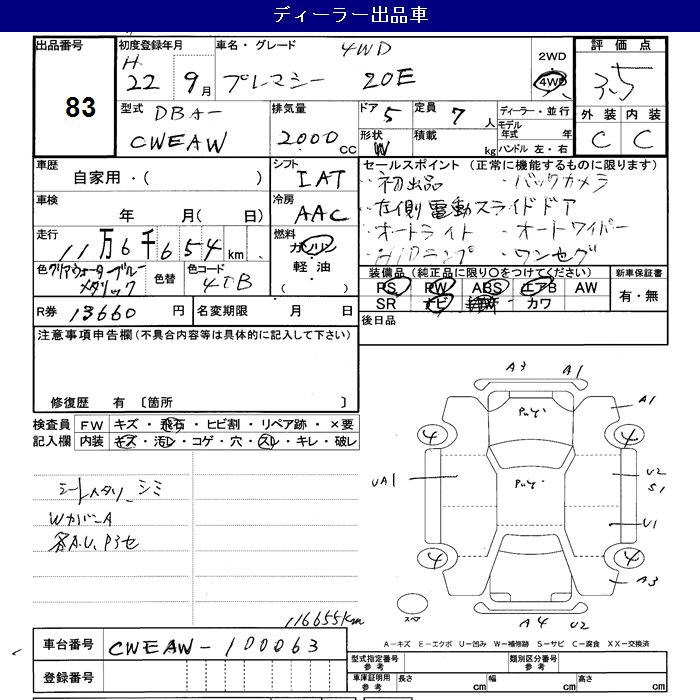 ディーラー出品車
出品番号 83
初度登録年月 H 22 年 9 月
車名・グレード 4WD プレマシー 20E
2WD 4WD
評価点 3.5
外装 内装
C C
型式 DBA- CWEAW
排気量 2000 CC
ドア 5 定員 7 人
形状 W 積載 kg
ディーラー・並行
モデル年式 年
ハンドル 左・右
車歴 自家用・( )
シフト IAT
車検 年 月( 日)
冷房 AAC
走行 11万6千654 km
燃料 ガソリン 軽油 ・( )
色 クリアウォーターブルーメタリック 色替 色コード 40B
R券 13660 円 名変期限 月 日
セールスポイント (正常に機能するものに限ります)
・初出品 ・バックカメラ
・左側電動スライドドア
・オートライト ・オートワイパー
・HIDランプ ・ワンセグ
装備品 (純正品に限り○をつけてください) 新車保証書
PS PW ABS エアB AW 有・無
SR ナビ カワ
後日品
注意事項申告欄 (不具合内容等は具体的に記入して下さい)
修復歴 有 〔箇所 〕
検査員記入欄 FW キズ・飛石・ヒビ割・リペア跡・×要
内装 キズ・汚レ・コゲ・穴・スレ・キレ・破レ
WカバーA
各A.U.Pヨセ
116655km
A3 A1
A1
4 4
UA1
U2
S1
U1
4 4
A3
A4 U2
スペア
A-キズ E-エクボ U-凹み W-補修跡 S-サビ C-腐食 XX-交換済
車台番号 CWEAW-100063
登録番号
型式指定番号 参考 類別区分番号 参考
車庫証明用 参考 長さ cm 幅 cm 高さ cm